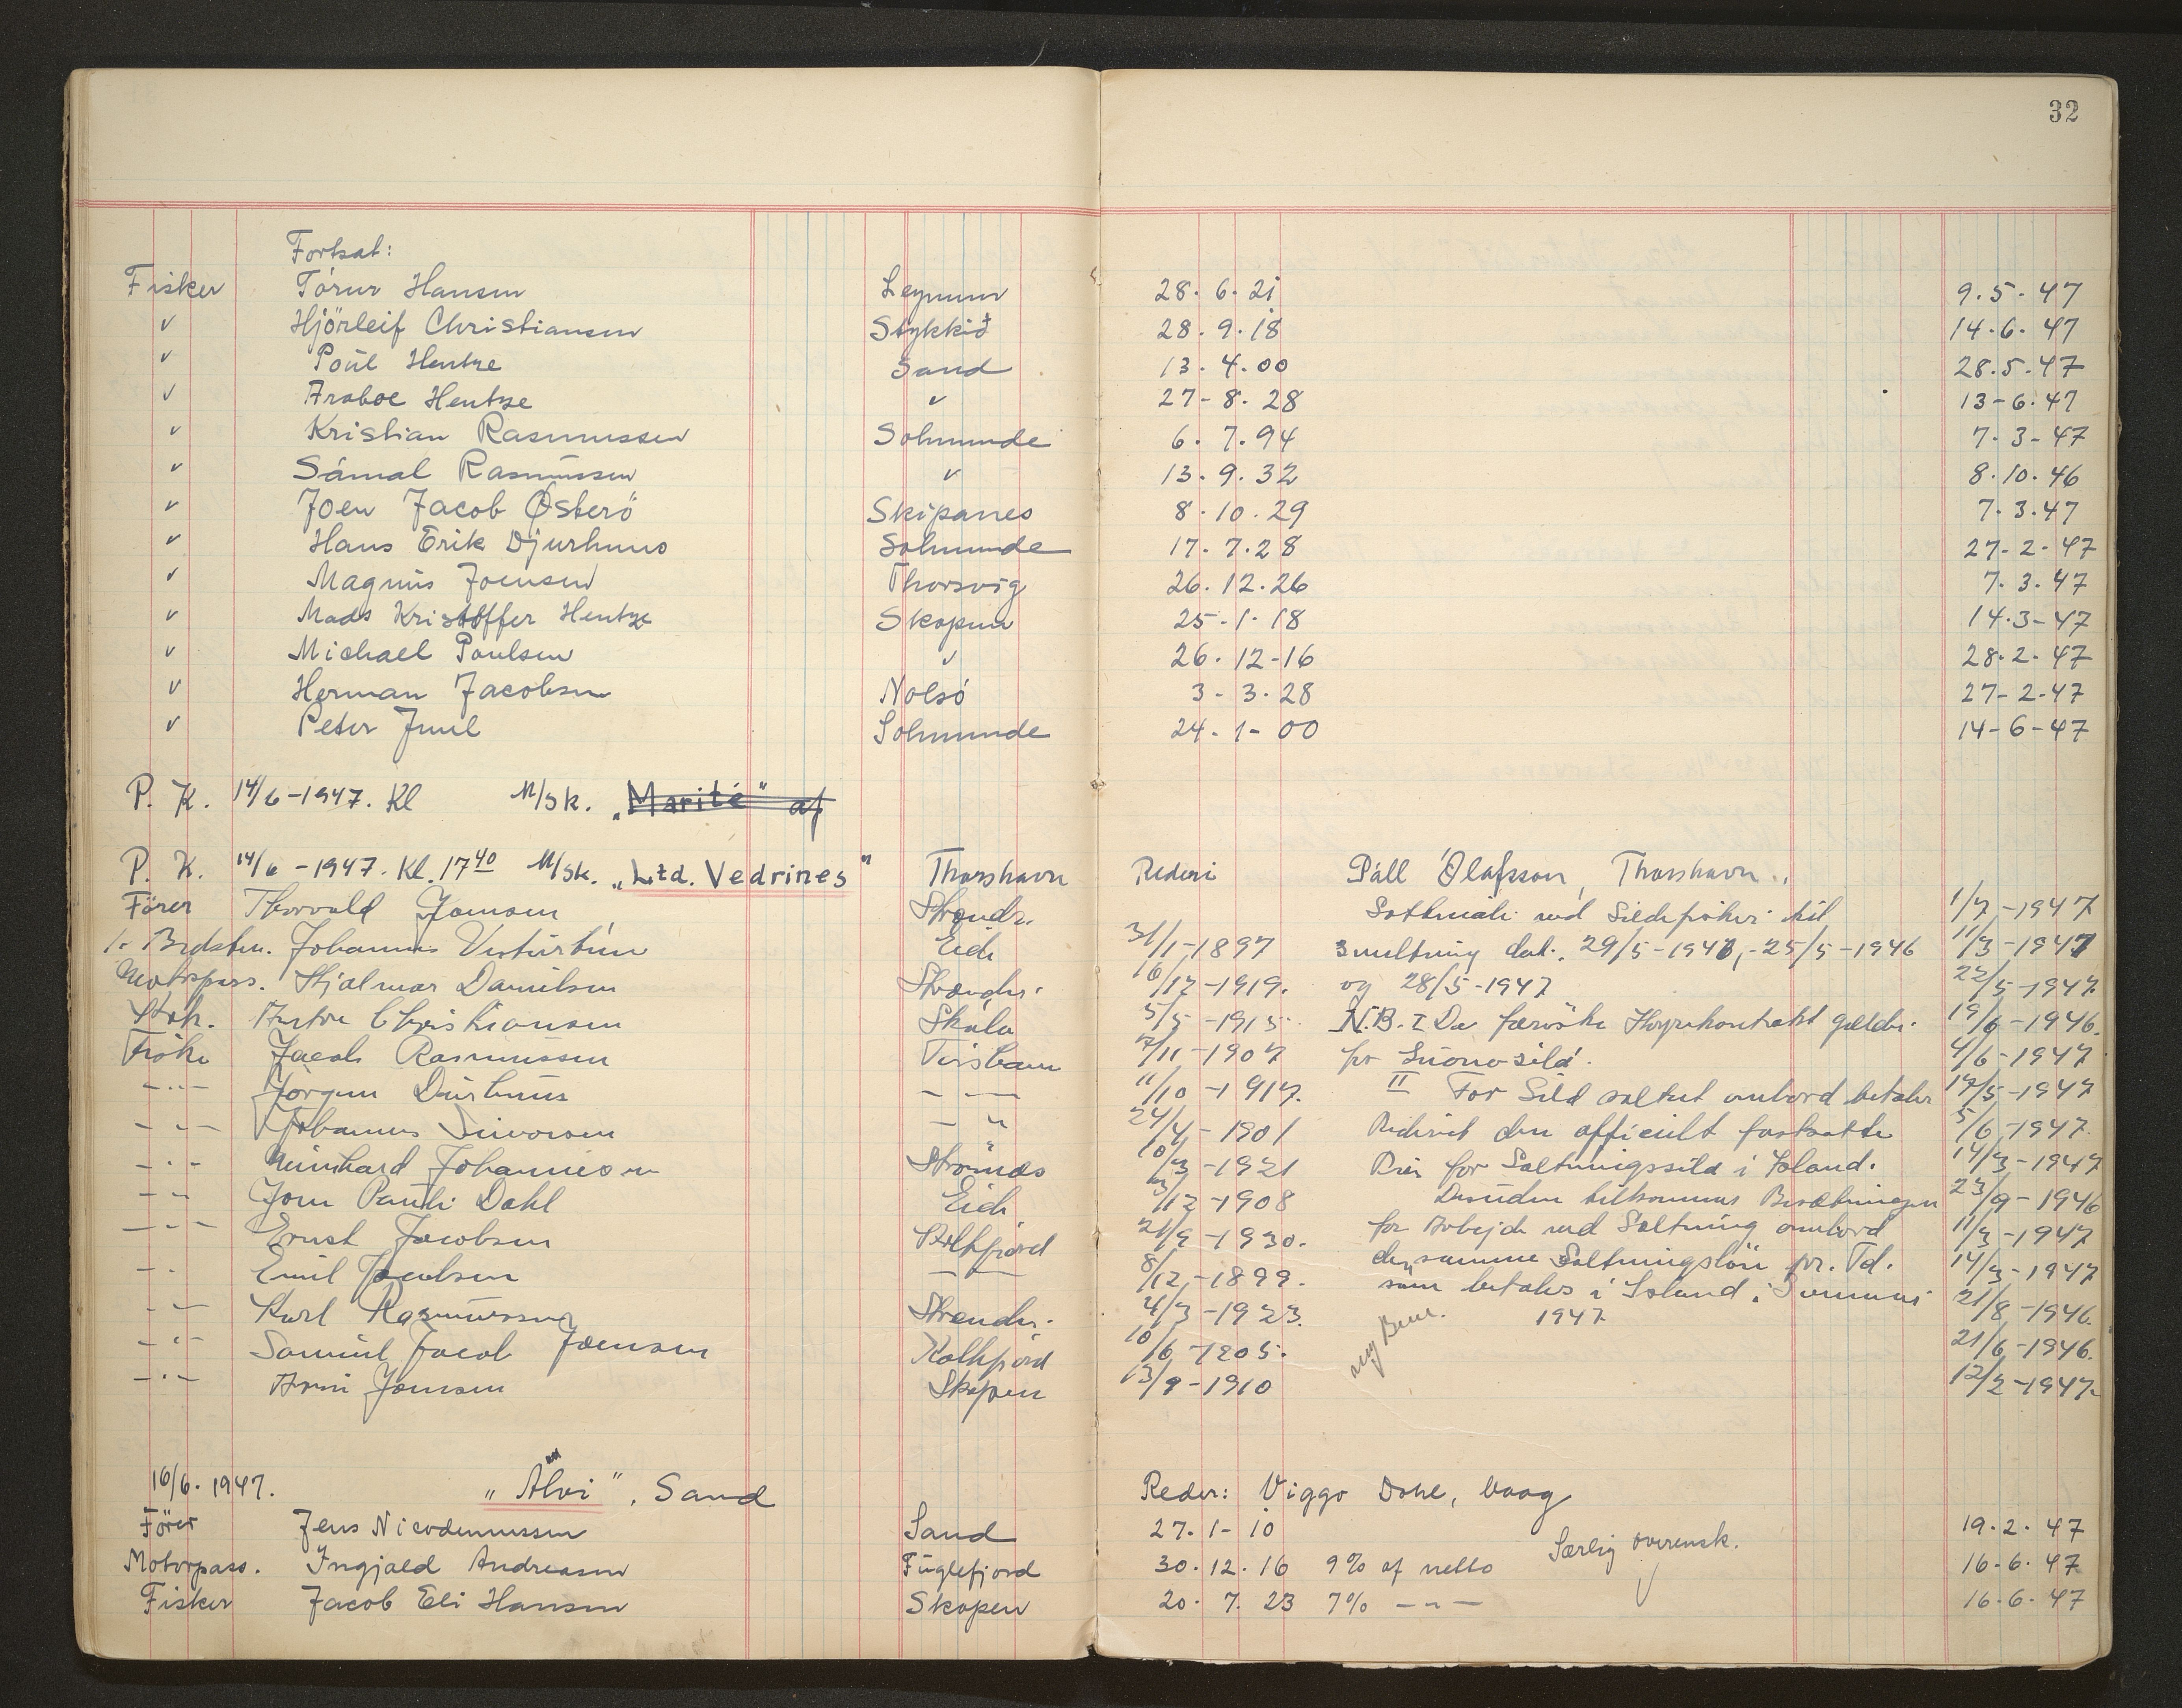 32
Fortsat:
Fisker Tórur Hansen Leynum 28. 6. 21 9. 5. 47
v Hjörleif Christiansen Stykkið 28. 9. 18 14. 6. 47
v Poúl Hentze Sand 13. 4. 00 28. 5. 47
v Araboe Hentze v 27 - 8. 28 13 - 6. 47
v Kristian Rasmussen Solmunde 6. 7. 94 7 - 3 - 47
v Sámal Rasmussen v 13. 9. 32 8. 10. 46
v Joen Jacob Østerö Skipanes 8. 10. 29 7. 3. 47
v Hans Erik Djurhuus Solmunde 17. 7. 28 27 - 2 - 47
v Magnus Joensen Thorsvig 26. 12. 26 7. 3. 47
v Mads Kristoffer Hentze Skopun 25 - 1. 18 14. 3 - 47
v Michael Poulsen v 26. 12 - 16 28. 2. 47
v Herman Jacobsen Nolsó 3 - 3. 28 27 - 2 - 47
v Peter Juul Solmunde 24. 1 - 00 14 - 6 - 47
P. K. 14/6 - 1947. Kl M/Sk. „Marité" af
P. K. 14/6 - 1947. Kl. 17 40 M/Sk. „Ltd. Vedrines" Thorshavn Rederi Páll Ólafsson, Thorshavn.
Förer Thorvald Joensen Strendr. 1/7 - 1947
1. Bedstm. Johannes Vesturtún Eide 31/1 - 1897 smeltning dat. 29/5 - 1946, - 25/5 - 1946 11/3 - 1947
Motorpass. Hjalmar Danielsen Strender. 16/12 - 1919. og 28/5 - 1947 22/5 - 1947.
Kok. Christiansen Skála 5/5 - 1915. N.B. I De færöske Hyrekontrakt gælder 19/6 - 1946.
Fiske Jacob Rasmussen 7/11 - 1907 for 4/6 - 1947
- " - Jörgen Durhuus - " - 11/10 - 1917. II For Sild saltet ombord betaler 17/5 - 1947
- " - Johannes Simonsen - " - 24/4 - 1901 Rederiet den officielt fastsatte 5/6 - 1947.
- " - Meinhard Johannesen Strömnes 10/3 - 1921 Pris for Saltningssild i Island. 14/3 - 1947
- " - Joen Pauli Dahl Eide 3/12 - 1908 Desuden tilkommer Besætningen 23/9 - 1946
- " - Ernst Jacobsen 21/9 - 1930. for Arbejde ved Saltning ombord 11/3 - 1947
- " - Emil Jacobsen - " - 8/12 - 1899. den samme Saltningslön pr. Td. 14/3 - 1947
- " - Karl Rasmussen Strender. 4/3 - 1923. som betales i Island i Sommer 21/8 - 1946.
1947
- " - Samuel Jacob Joensen Kolkfjord 10/6 - 1905. 21/6 - 1946.
- " - Joensen Skopen 13/9 - 1910 12/2 - 1947.
16/6. 1947. „Alvi", Sand Reder: Viggo Dahl, Vaag
Förer Jens Nicodemussen Sand 27. 1 - 10 Særlig overensk. 19. 2. 47
Motorpass. Ingjald Andreasen Fuglefjord 30. 12. 16 9% af netto 16. 6. 47
Fisker Jacob Eli Hansen Skopen 20. 7. 23 7% - " - 16. 6. 47